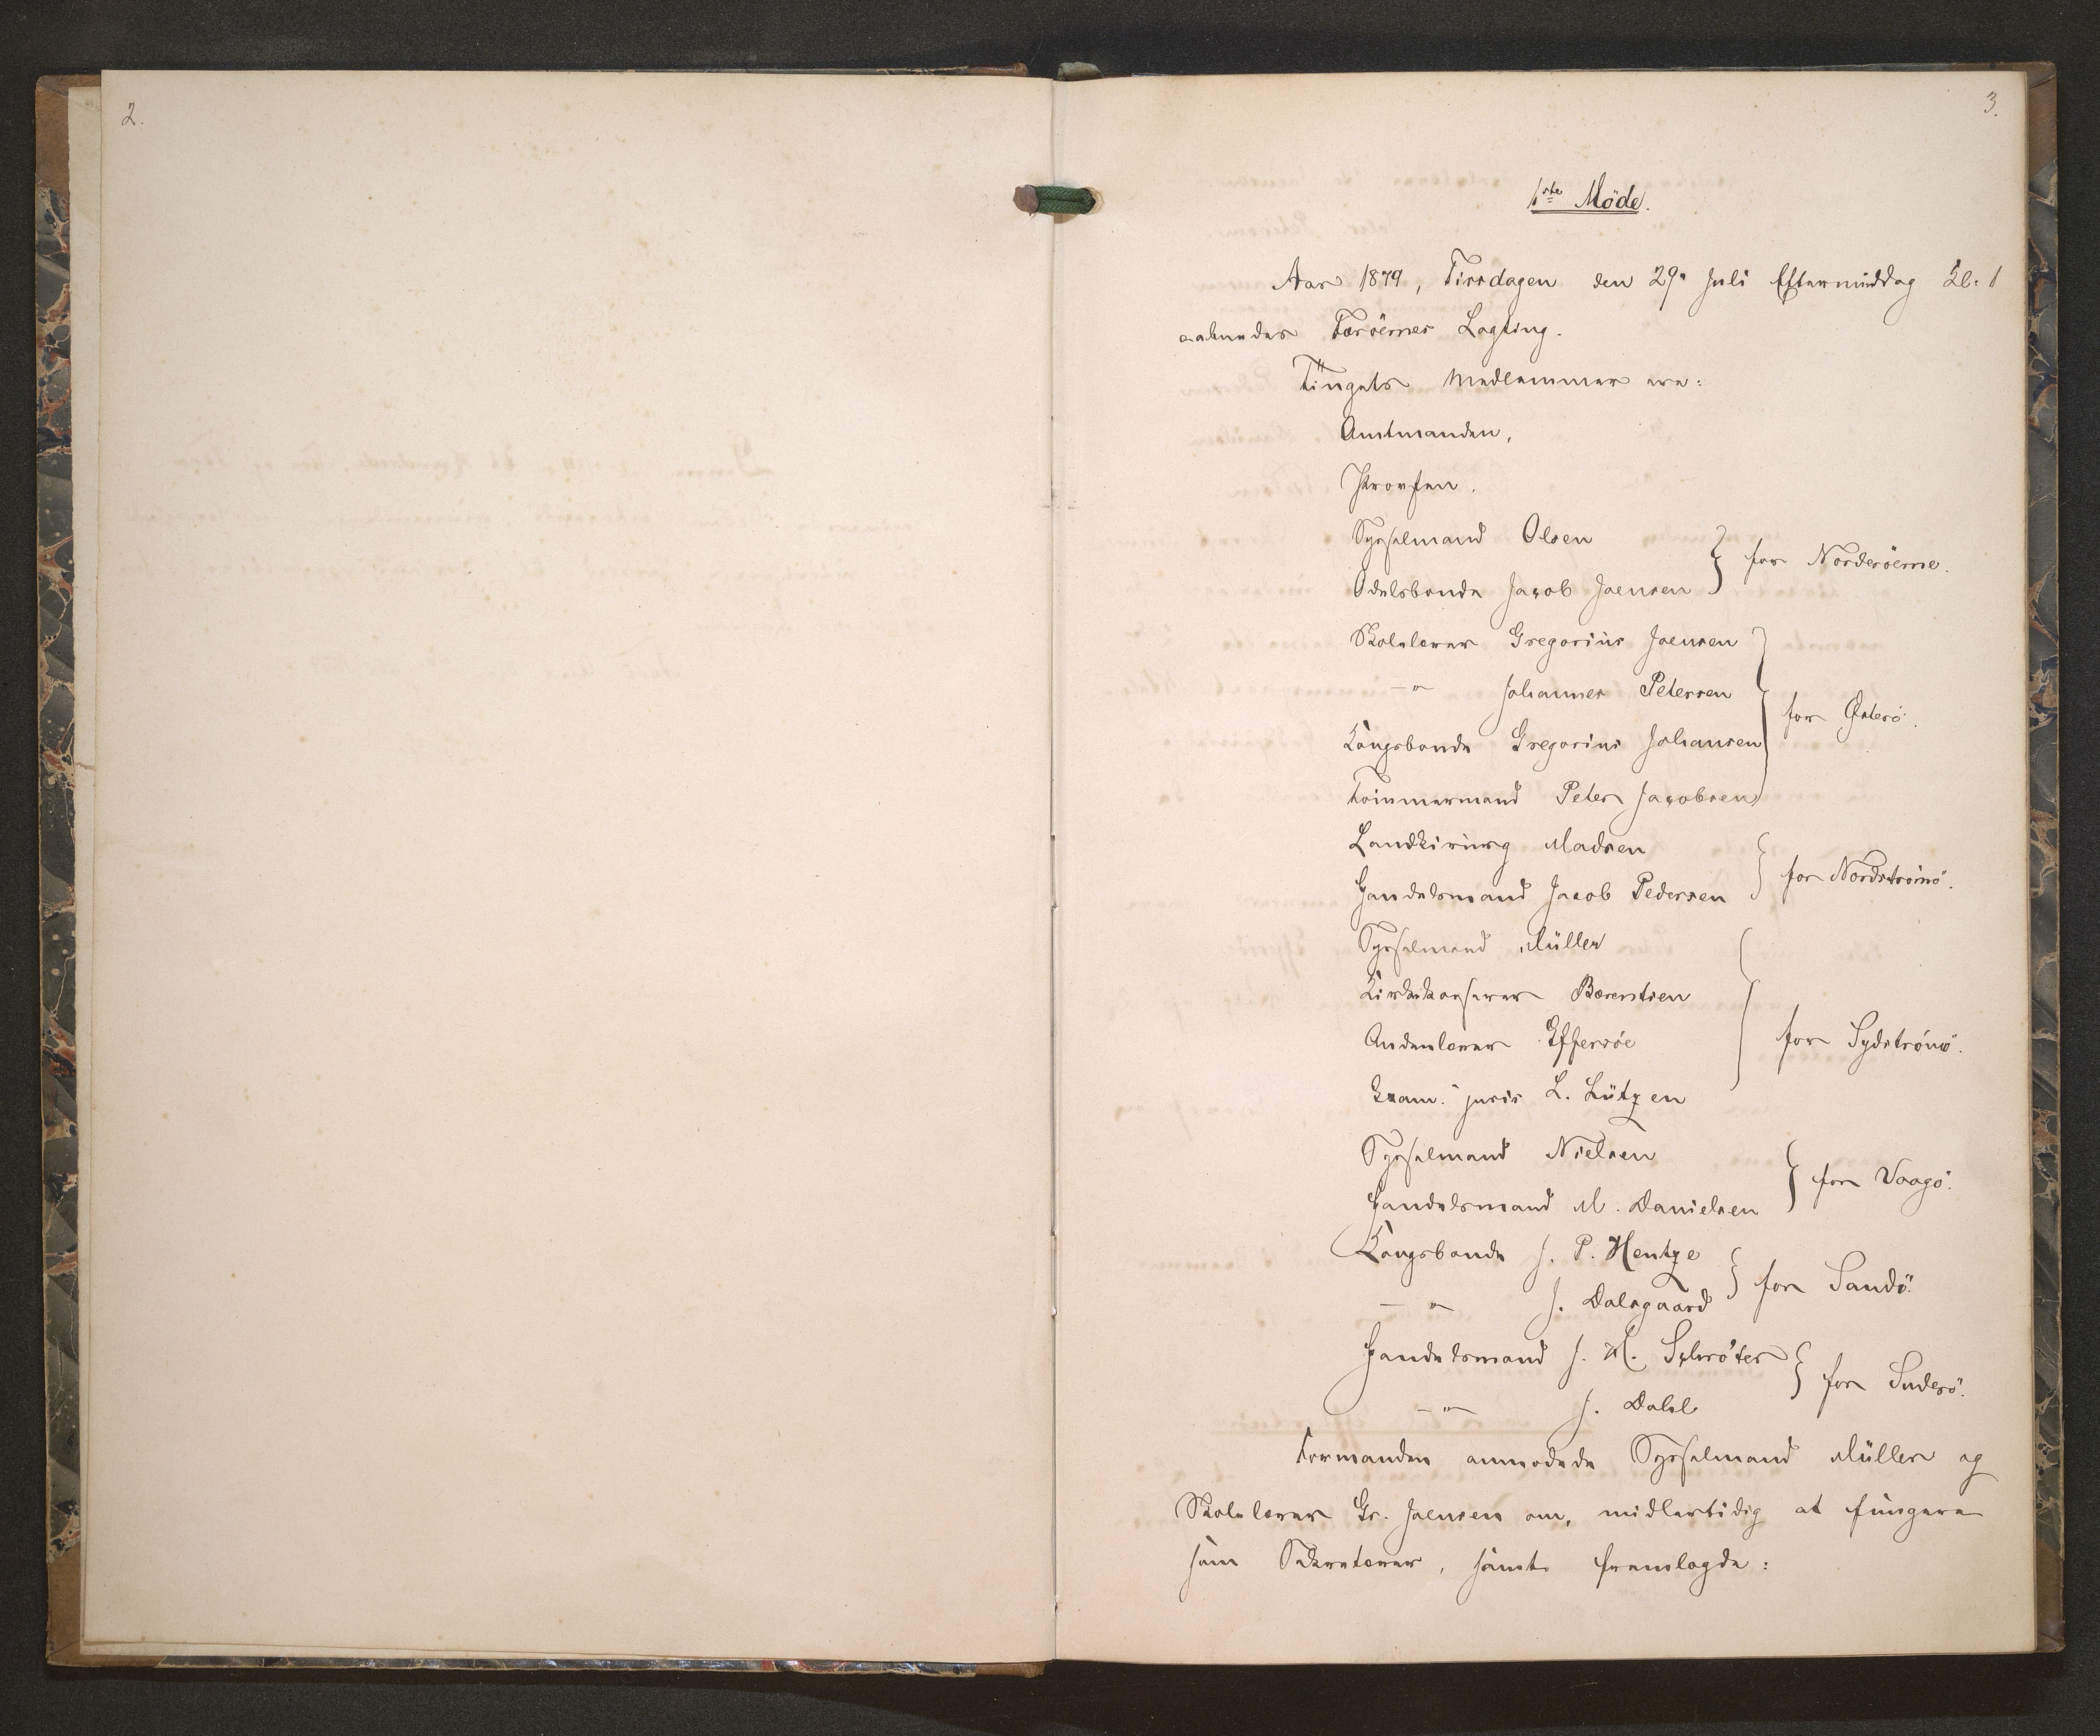 2.
3.
1ste Möde.
Aar 1879, Tirsdagen den 29. Juli Eftermiddag Kl. 1
aabnedes Færöernes Lagting.
Tingets Medlemmer ere:
Amtmanden,
Provsten.
Sysselmand Olsen
Odelsbonde Jacob Joensen } for Norderöerne.
Skolelærer Gregorius Joensen
—〃— Johannes Petersen
Kongsbonde Gregorius Johansen
Tømmermand Peter Jacobsen } for Østerö.
Landkirurg Madsen
Handelsmand Jacob Pedersen } for Nordströmö.
Sysselmand Müller
Kirkekasserer Bærentsen
Andenlærer Effersöe
Exam. juris L. Lützen } for Sydströmö.
Sysselmand Nielsen
Handelsmand M. Danielsen } for Vaagö.
Kongsbonde J. P. Hentze
—〃— J. Dalsgaard } for Sandö.
Handelsmand J. H. Schröter
—〃— J. Dahl } for Suderö.
Formanden anmodede Sysselmand Müller og
Skolelærer Gr. Joensen om, midlertidig at fungere
som Sekretærer, samt fremlagde: